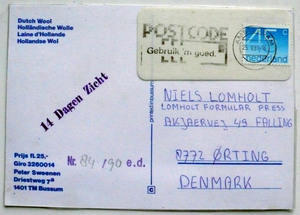 Dutch Wool
Holländische Wolle
Laine d'Hollande
Hollandse Wol
POSTCODE
Gebruik 'm goed.
Nederland
14 Dagen Zicht
NIELS LOMHOLT
LOMHOLT FORMULAR PRESS
AKJAERVEJ 49 FALLING
8772 ØRTING
DENMARK
Prijs fl. 25,-
Giro 3260014
Peter Sweenen
Driestweg 7ᵃ
1401 TM Bussum
Nr. 84/90 e.d.